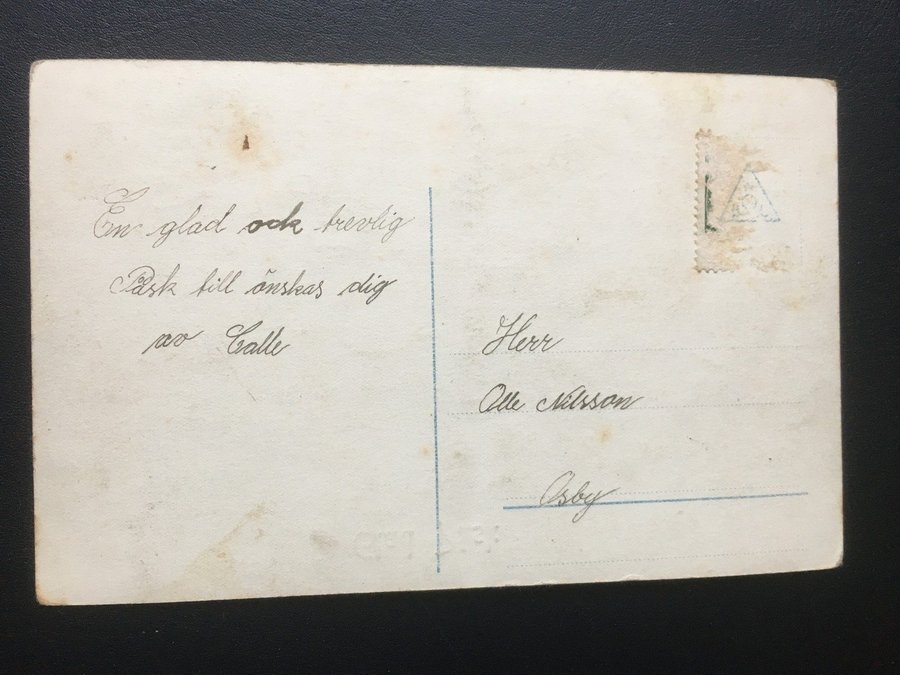 En glad ock trevlig
Påsk till önskas dig
av Calle
Herr
Olle Nilsson
Osby